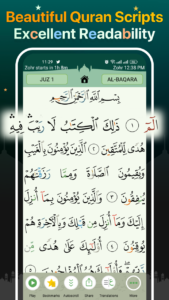 Beautiful Quran Scripts
Excellent Readability
11:29
Zohr starts in 1h 8m
Zohr 12:38 PM
JUZ 1
AL-BAQARA
بِسْمِ اللّٰهِ الرَّحْمٰنِ الرَّحِيْمِ
الٓمّٓ ۚ ۱ ذٰلِكَ الْكِتٰبُ لَا رَيْبَ ۛ فِيْهِ ۛ
هُدًى لِّلْمُتَّقِيْنَ ۙ ۲ الَّذِيْنَ يُؤْمِنُوْنَ بِالْغَيْبِ
وَيُقِيْمُوْنَ الصَّلٰوةَ وَمِمَّا رَزَقْنٰهُمْ
يُنْفِقُوْنَ ۙ ۳ وَالَّذِيْنَ يُؤْمِنُوْنَ بِمَآ اُنْزِلَ
اِلَيْكَ وَمَآ اُنْزِلَ مِنْ قَبْلِكَ ۚ وَبِالْاٰخِرَةِ
هُمْ يُوْقِنُوْنَ ؕ ۴ اُولٰٓئِكَ عَلٰى هُدًى مِّنْ
Play
Bookmarks
Autoscroll
Share
Translations
More